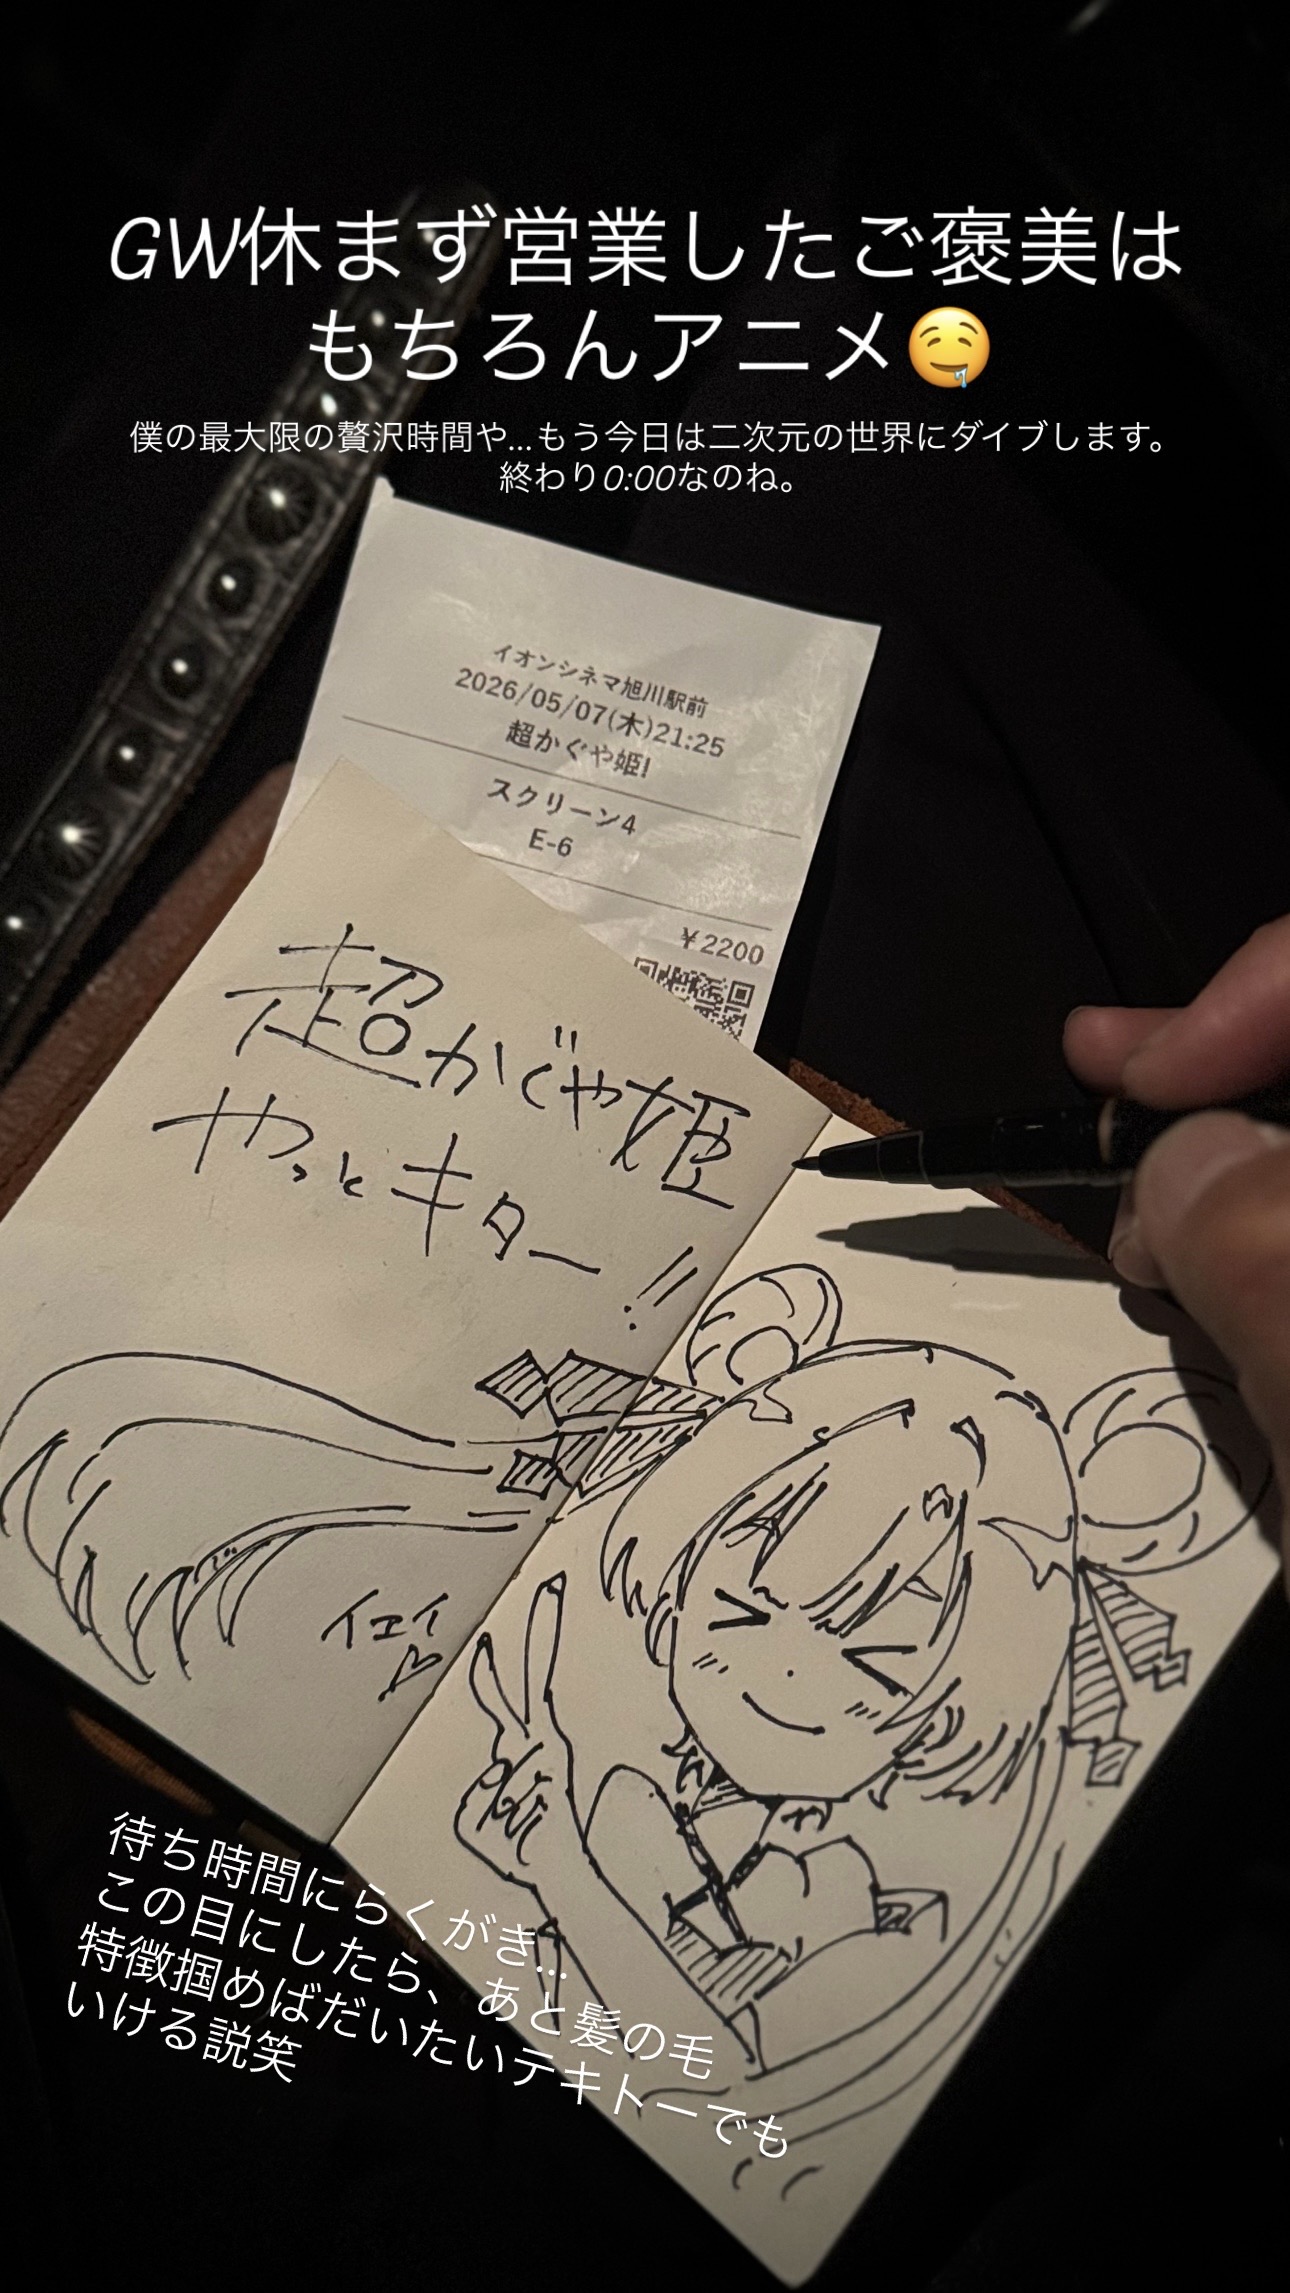 GW休まず営業したご褒美は
もちろんアニメ🤤
僕の最大限の贅沢時間や...もう今日は二次元の世界にダイブします。
終わり0:00なのね。
イオンシネマ旭川駅前
2026/05/07(木)21:25
超かぐや姫!
スクリーン4
E-6
¥2200
超かぐや姫
やっとキター!!
イエイ♡
待ち時間にらくがき...
この目にしたら、あと髪の毛
特徴掴めばだいたいテキトーでも
いける説笑